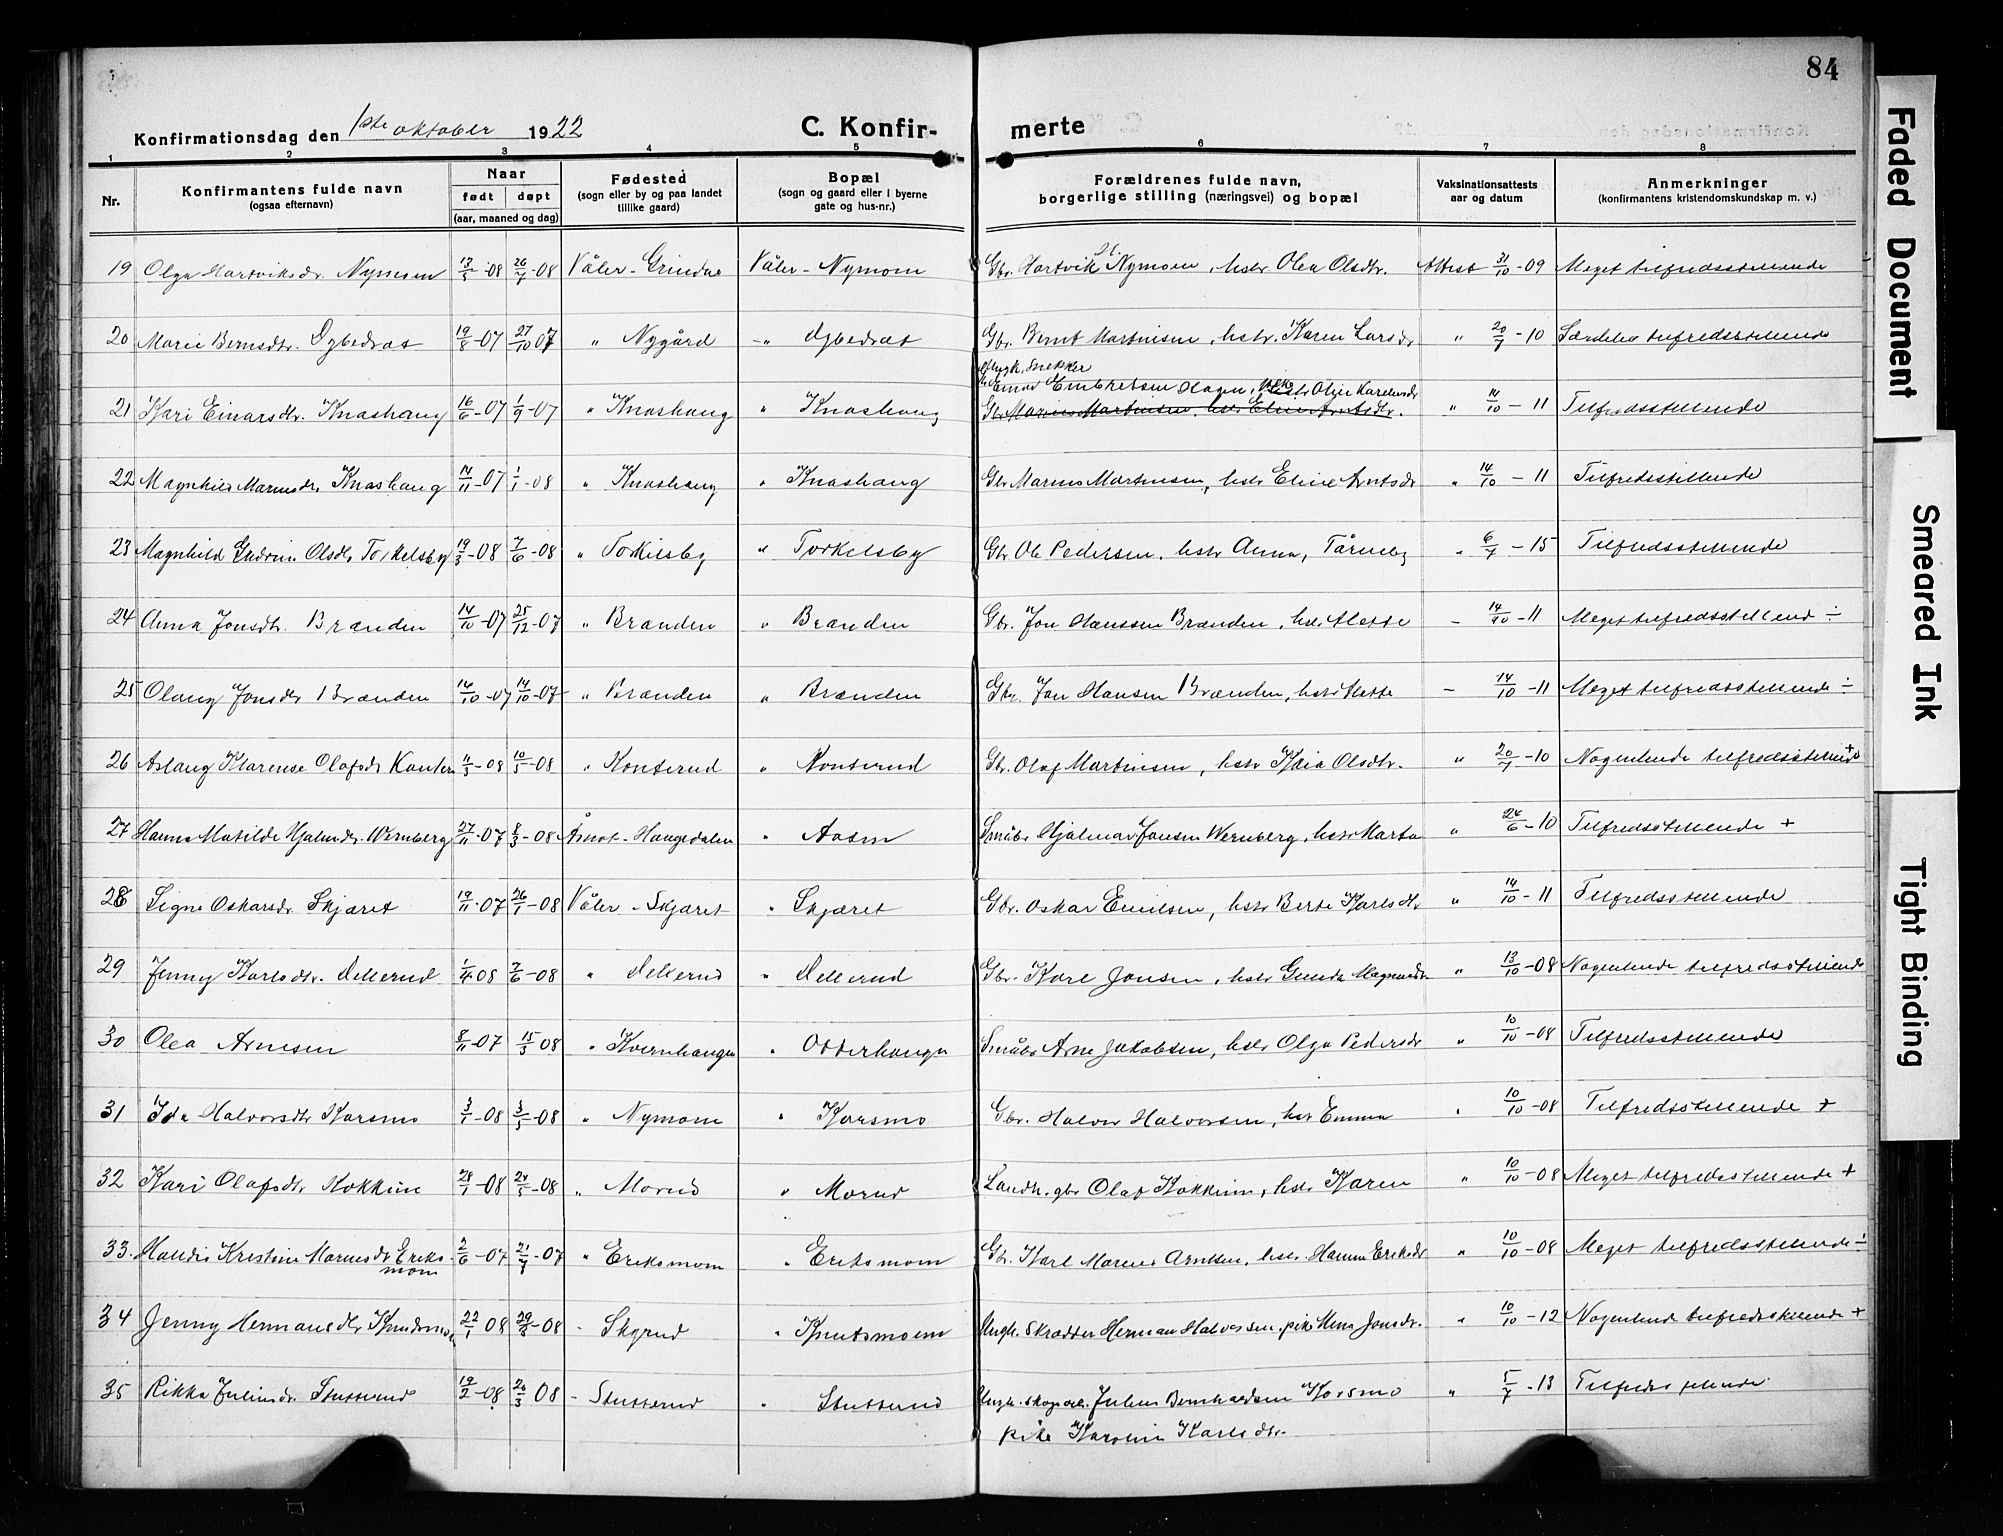 84
Konfirmationsdag den 1ste oktober 1922
C. Konfir-
merte
1 2 3 4 5 6 7 8
Nr.
Konfirmantens fulde navn
(ogsaa efternavn)
Naar
født døpt
(aar, maaned og dag)
Fødested
(sogn eller by og paa landet
tillike gaard)
Bopæl
(sogn og gaard eller i byerne
gate og hus-nr.)
Forældrenes fulde navn,
borgerlige stilling (næringsvei) og bopæl
Vaksinationsattests
aar og datum
Anmerkninger
(konfirmantens kristendomskundskap m. v.)
19 Olga Hartviksdr. Nymoen 13/5-08 26/7-08 Våler - Grindae Våler - Nymoen Gbr. Hartvik Nymoen, hstr Olea Olsdtr. Attest 31/10-09 Meget tilfredsstillende
20 Marie Berntsdtr. 19/8-07 27/10 07 " Nygård -" Gbr. Bernt Martinsen, hstr. Karen Larsdr " 20/7-10 Særdeles tilfredsstillende
Ungk. Snekker
Einar Embretsen Hagen, pike Oline Kareliusdr
21 Kari Einarsdtr. Knashaug 16/6-07 1/9-07 " Knashaug " Knashaug Gbr Marius Martinsen, hstr Eline Arntsdtr. " 14/10-11 Tilfredsstillende
22 Magnhild Mariusdr. Knashaug 14/11-07 1/1-08 " Knashaug " Knashaug Gbr Marius Martinsen, hstr Eline Arntsdr " 14/10-11 Tilfredsstillende
23 Magnhild Gudrun Olsdtr Torkelsby 19/3-08 7/6-08 " Torkilsby " Torkelsby Gbr Ole Pedersen, hstr Anna, Tårneby " 6/7-15 Tilfredsstillende
24 Anna Jonsdtr. Brænden 14/10-07 25/12-07 " Brænden " Brænden Gbr. Jon Hanssen Brænden, hstr Mette - 14/10-11 Meget tilfredsstillend ÷
25 Olaug Jonsdtr Brænden 14/10-07 14/10-07 " Brænden " Brænden Gbr. Jon Hansen Brænden, hstr Mette - 14/10-11 Meget tilfredsstillende ÷
26 Aslaug Klarense Olafsdr 11/3-08 10/5-08 " Konterud " Konterud Gbr. Olaf Martinsen, hstr Kaia Olsdtr. " 20/7-10 Nogenlunde tilfredsstillende +
27 Hanna Matilde Hjalmdr. Wernberg 27/11-07 8/3-08 Åsnes - Haugedalen " Aasen Småbr Hjalmar Jonsen Wernberg, hstr Marta " 24/6-10 Tilfredsstillende +
28 Signe Oskarsdr. Skjæret 19/11-07 26/1-08 Våler - Skjæret " Skjæret Gbr. Oskar Emilsen, hstr Berte Karlsdtr " 14/10-11 Tilfredsstillende
29 Jenny Karlsdtr. Dellerud 1/4 08 7/6-08 " Dellerud " Dellerud Gbr. Karl Jonsen, hstr Gunda Magnusdr " 13/10-08 Nogenlunde tilfredsstillende
30 Olea Arnesen 8/11-07 15/3 08 " Kvernhaugen " Otterhaugen Småbr Arne Jakobsen, hstr Olga Pedersdr " 10/10-08 Tilfredsstillende
31 Ida Halvorsdtr Korsmo 3/1-08 3/5-08 " Nymoen " Korsmo Gbr. Halvor Halvorsen, hstr Emma " 10/10-08 Tilfredsstillende +
32 Kari Olafsdtr Kokkim 28/1-08 24/5-08 " Morud " Morud Landh. gbr Olaf Kokkim, hstr Karen " 10/10-08 Meget tilfredsstillende +
33. Haldis Kristine Mariusdr Eriks- 2/6-07 21/7-07 " Eriksmoen " Eriksmoen Gbr. Karl Marius Arntsen, hstr. Hanna Eriksdr " 10/10-08 Meget tilfredsstillende ÷
moen
34 Jenny Hermansdtr Knudsmoen 22/1 08 29/3-08 - Skyrud " Knutsmoen Ungk. Skrædder Herman Halvorsen, pike Mina Jonsdr. " 10/10-12 Nogenlund tilfredsstillende +
35 Rikka Juliusdr. Stutterud 19/2-08 20/3 08 - Stutterud " Stutterud Ungk. skogsarb. Julius Bernhardsen Korsmo " 5/7-13 Tilfredsstillende
pike Karoline Karlsdtr.
Faded Document
Smeared Ink
Tight Binding